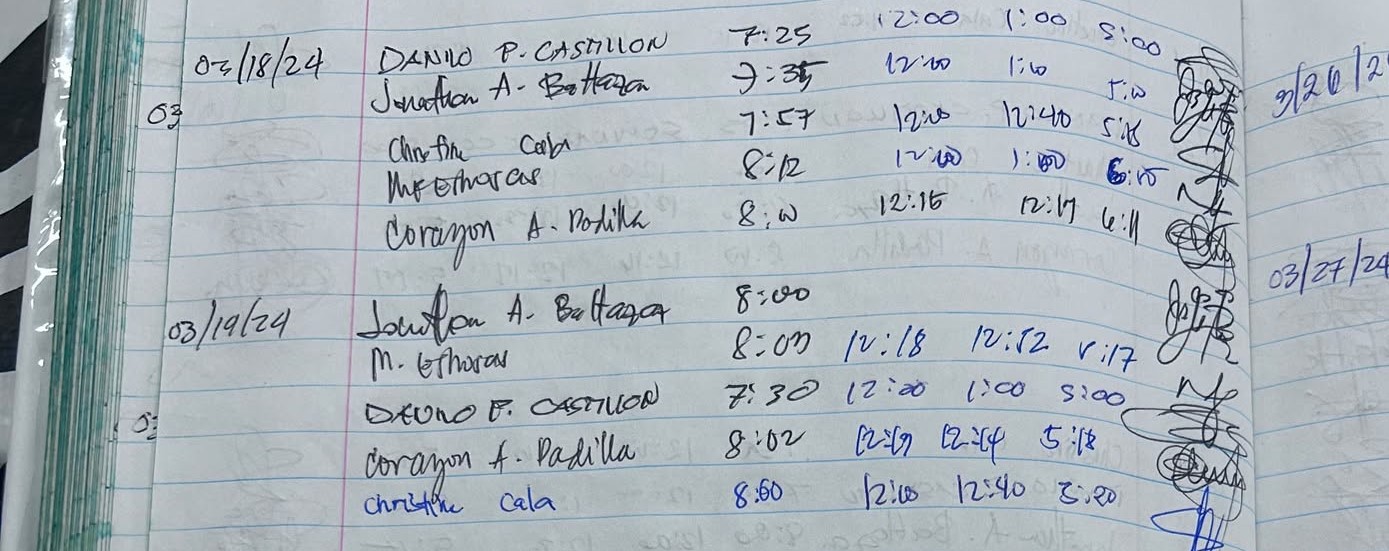 03/18/24 DANILO P. CASTILLON 7:25 12:00 1:00 5:00
Jonathan A. Baltazar 7:35 12:00 1:00 5:00
03
Christine Cala 7:57 12:00 12:40 5:15
8:12 12:00 1:00
Corazon A. Padilla 8:10 12:15 12:17 6:11
03/19/24 Jonathan A. Baltazar 8:00
M. 8:03 12:18 12:52 5:17
DANILO P. CASTILLON 7:30 12:00 1:00 5:00
Corazon A. Padilla 8:02 12:14 5:18
Christine Cala 8:00 12:00 12:40 5:20
3/26/2
03/27/24